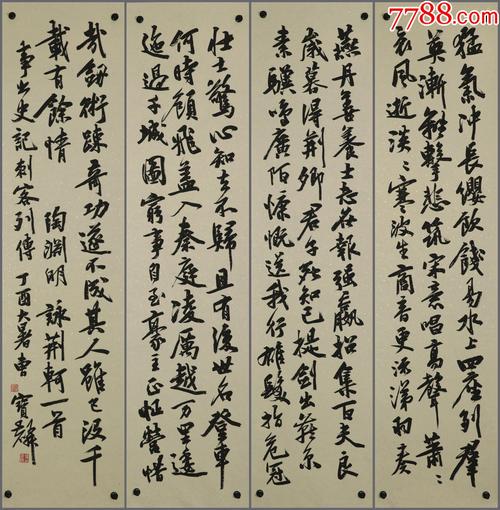 7788.com
猛氣沖長纓飲餞易水上四座列群
英漸離擊悲筑宋意唱高聲蕭蕭
哀風逝淡淡寒波生商音更流涕羽奏
燕丹善養士志在報強嬴招集百夫良
歲暮得荊卿君子死知己提劍出燕京
素驥鳴廣陌慷慨送我行雄髮指危冠
壯士驚心知去不歸且有後世名登車
何時顧飛蓋入秦庭凌厲越萬里逶
迤過千城圖窮事自至豪主正怔營惜
哉劍術疎奇功遂不成其人雖已沒千
載有餘情 陶淵明 詠荊軻一首
事出史記刺客列傳 丁酉大暑書 寶